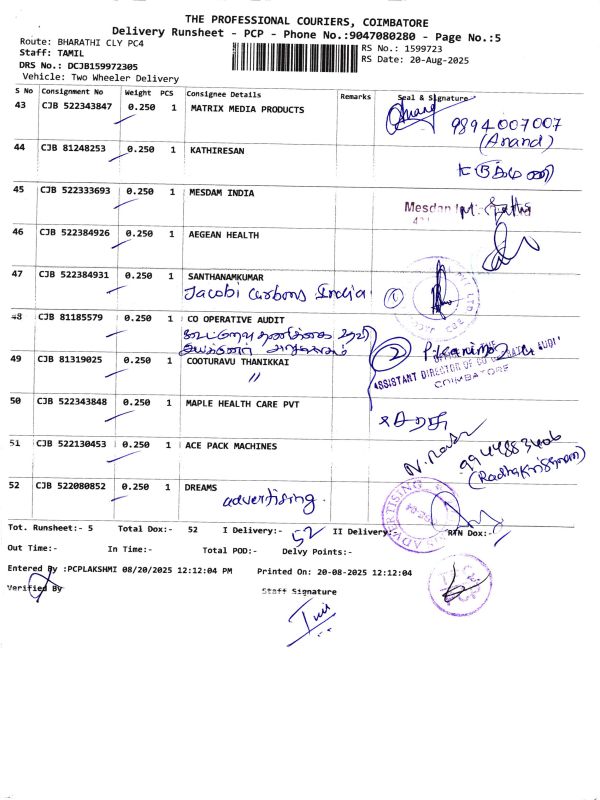 THE PROFESSIONAL COURIERS, COIMBATORE
Delivery Runsheet - PCP - Phone No.:9047080280 - Page No.:5
Route: BHARATHI CLY PC4
RS No.: 1599723
Staff: TAMIL
RS Date: 20-Aug-2025
DRS No.: DCJB159972305
Vehicle: Two Wheeler Delivery
S No Consignment No Weight PCS Consignee Details Remarks Seal & Signature
43 CJB 522343847 0.250 1 MATRIX MEDIA PRODUCTS
9894007007
(Anand)
44 CJB 81248253 0.250 1 KATHIRESAN
45 CJB 522333693 0.250 1 MESDAM INDIA
Mesdan
46 CJB 522384926 0.250 1 AEGEAN HEALTH
47 CJB 522384931 0.250 1 SANTHANAMKUMAR
Jacobi Carbons India 1
48 CJB 81185579 0.250 1 CO OPERATIVE AUDIT
2
49 CJB 81319025 0.250 1 COOTURAVU THANIKKAI
"
ASSISTANT DIRECTOR OF CO-OPERATIVE AUDIT
COIMBATORE
50 CJB 522343848 0.250 1 MAPLE HEALTH CARE PVT
51 CJB 522130453 0.250 1 ACE PACK MACHINES
(Radhakrishnan)
52 CJB 522080852 0.250 1 DREAMS
advertising.
ADVERTISING
Tot. Runsheet:- 5 Total Dox:- 52 I Delivery:- 52 II Delivery:- RTN Dox:-
Out Time:- In Time:- Total POD:- Delvy Points:-
Entered By :PCPLAKSHMI 08/20/2025 12:12:04 PM Printed On: 20-08-2025 12:12:04
Verified By Staff Signature